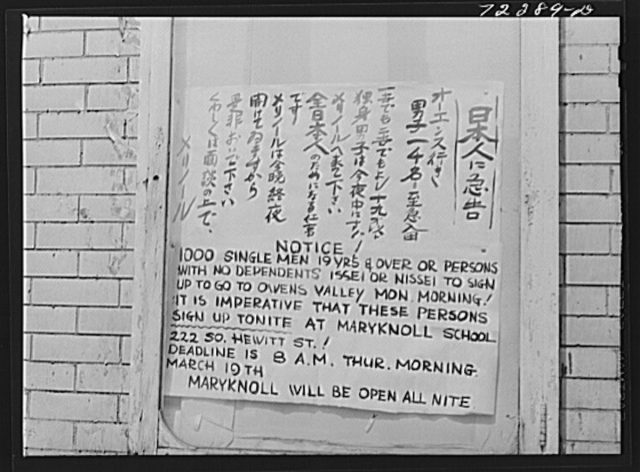 72389-D
日本人に急告
オーエンス行き
男子一千名至急入用
一世でも二世でもよし十九才以上
独身男子は今夜中に
メリノールへ来て下さい
全日本人のためになる仕事
です
メリノールは今晩終夜
開けてゐますから
是非おいで下さい
くわしくは面談の上で、
メリノール
NOTICE
1000 SINGLE MEN 19 YRS & OVER OR PERSONS
WITH NO DEPENDENTS ISSEI OR NISSEI TO SIGN
UP TO GO TO OWENS VALLEY MON. MORNING.!
IT IS IMPERATIVE THAT THESE PERSONS
SIGN UP TONITE AT MARYKNOLL SCHOOL
222 SO. HEWITT ST.!
DEADLINE IS 8 A.M. THUR. MORNING
MARCH 19TH
MARYKNOLL WILL BE OPEN ALL NITE